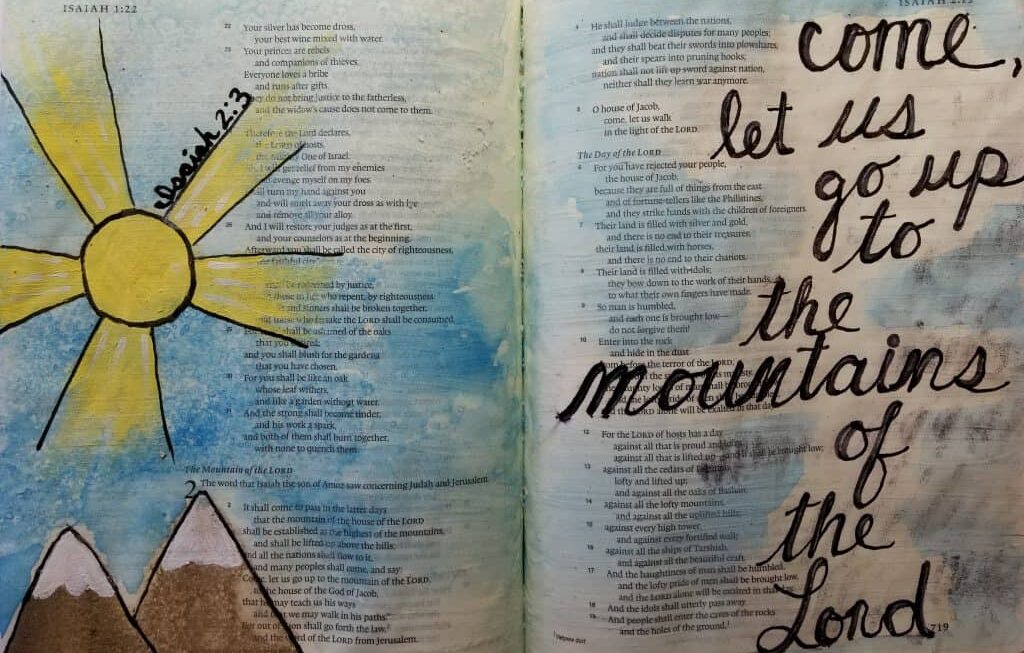 ISAIAH 1:22
22 Your silver has become dross,
your best wine mixed with water.
23 Your princes are rebels
and companions of thieves.
Everyone loves a bribe
and runs after gifts.
They do not bring justice to the fatherless,
and the widow's cause does not come to them.
Isaiah 2:3
Therefore the Lord declares,
the LORD of hosts,
the Mighty One of Israel:
I will get relief from my enemies
avenge myself on my foes.
will turn my hand against you
and will smelt away your dross as with lye
and remove all your alloy.
26 And I will restore your judges as at the first,
and your counselors as at the beginning.
Afterward you shall be called the city of righteousness,
the faithful city
redeemed by justice,
those in her who repent, by righteousness.
and sinners shall be broken together,
and those who forsake the LORD shall be consumed.
29 For they shall be ashamed of the oaks
that you desired;
and you shall blush for the gardens
that you have chosen.
30 For you shall be like an oak
whose leaf withers,
and like a garden without water.
31 And the strong shall become tinder,
and his work a spark,
and both of them shall burn together,
with none to quench them.
The Mountain of the LORD
2 The word that Isaiah the son of Amoz saw concerning Judah and Jerusalem.
2 It shall come to pass in the latter days
that the mountain of the house of the LORD
shall be established as the highest of the mountains,
and shall be lifted up above the hills;
and all the nations shall flow to it,
and many peoples shall come, and say:
Come, let us go up to the mountain of the LORD,
to the house of the God of Jacob,
that he may teach us his ways
and that we may walk in his paths."
For out of Zion shall go forth the law,
and the word of the LORD from Jerusalem.
4 He shall judge between the nations,
and shall decide disputes for many peoples;
and they shall beat their swords into plowshares,
and their spears into pruning hooks;
nation shall not lift up sword against nation,
neither shall they learn war anymore.
5 O house of Jacob,
come, let us walk
in the light of the LORD.
The Day of the LORD
6 For you have rejected your people,
the house of Jacob,
because they are full of things from the east
and of fortune-tellers like the Philistines,
and they strike hands with the children of foreigners.
7 Their land is filled with silver and gold,
and there is no end to their treasures;
their land is filled with horses,
and there is no end to their chariots.
8 Their land is filled with idols;
they bow down to the work of their hands,
to what their own fingers have made.
9 So man is humbled,
and each one is brought low—
do not forgive them!
10 Enter into the rock
and hide in the dust
from before the terror of the LORD,
the LORD alone will be exalted in that day.
12 For the LORD of hosts has a day
against all that is proud and lofty,
against all that is lifted up—and it shall be brought low;
13 against all the cedars of Lebanon,
lofty and lifted up;
and against all the oaks of Bashan;
14 against all the lofty mountains,
and against all the uplifted hills;
15 against every high tower,
and against every fortified wall;
16 against all the ships of Tarshish,
and against all the beautiful craft.
17 And the haughtiness of man shall be humbled,
and the lofty pride of men shall be brought low,
and the LORD alone will be exalted in that day.
18 And the idols shall utterly pass away.
19 And people shall enter the caves of the rocks
and the holes of the ground,
719
come,
let us
go up
to
the
mountains
of
the
Lord